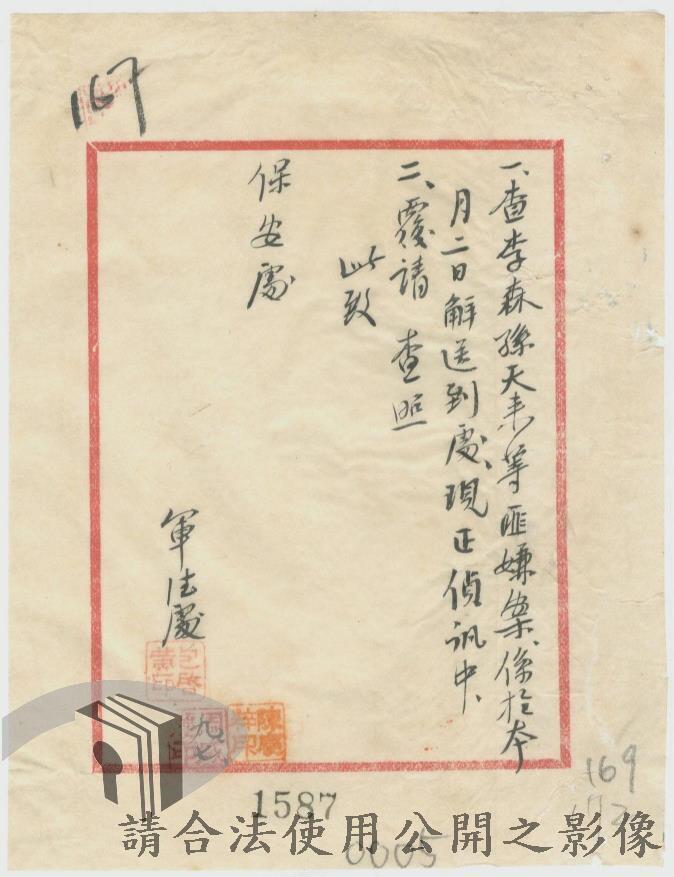 167
一、查李森孫天來等匪嫌案、係於本
月二日解送到處、現正偵訊中、
二、覆請 查照
此致
保安處
軍法處
九七
1587
0005
169
請合法使用公開之影像